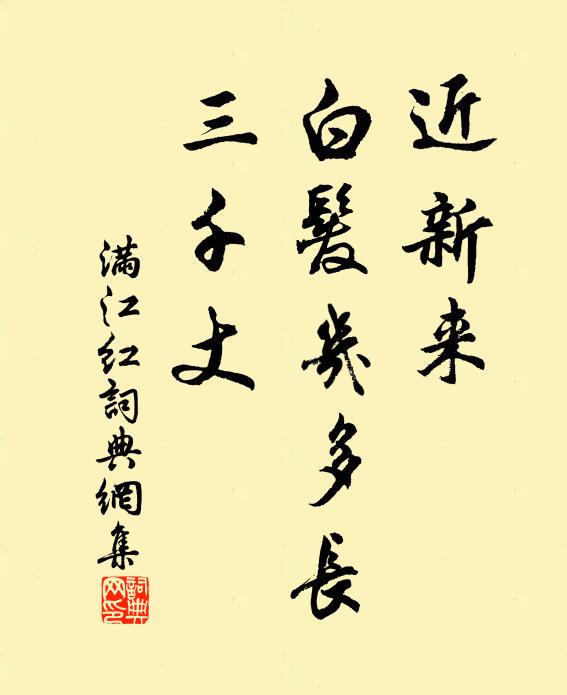 近新来
白髮幾多長
三千丈
满江红詞典網集
詞典
网印